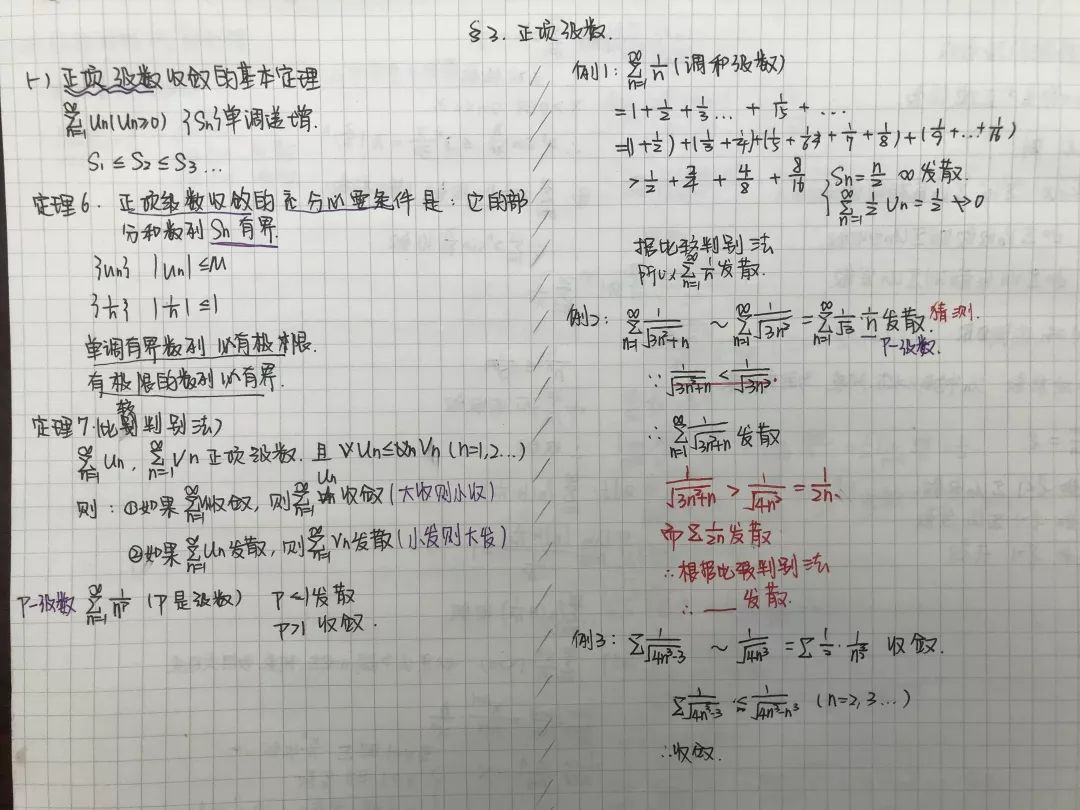 §3. 正项级数.
(一) 正项级数收敛的基本定理
∑_{n=1}^∞ Un (Un≥0) {Sn}单调递增.
S₁ ≤ S₂ ≤ S₃ …
定理6. 正项级数收敛的充分必要条件是: 它的部
分和数列 Sn 有界.
{Un} |Un| ≤ M
{1/n} |1/n| ≤ 1
单调有界数列必有极限.
有极限的数列必有界.
定理7.(比较判别法)
∑_{n=1}^∞ Un, ∑_{n=1}^∞ Vn 正项级数. 且 Un ≤ Vn (n=1,2…)
则: ①如果 ∑_{n=1}^∞ Vn 收敛, 则 ∑_{n=1}^∞ Un 收敛 (大收则小收)
②如果 ∑_{n=1}^∞ Un 发散, 则 ∑_{n=1}^∞ Vn 发散 (小发则大发)
P-级数 ∑_{n=1}^∞ 1/n^p (P是级数) P≤1 发散
P>1 收敛.
例1: ∑_{n=1}^∞ 1/n (调和级数)
= 1 + 1/2 + 1/3 … + 1/15 + …
= (1 + 1/2) + (1/3 + 1/4) + (1/5 + 1/6 + 1/7 + 1/8) + (1/9 + … + 1/16)
> 1/2 + 2/4 + 4/8 + 8/16
Sn = n/2 ∞ 发散.
∑_{n=1}^∞ 1/2 Un = 1/2 ↛ 0
据比较判别法
所以 ∑_{n=1}^∞ 1/n 发散.
例2: ∑_{n=1}^∞ 1/√(3n²+n) ~ ∑_{n=1}^∞ 1/√(3n²) = ∑_{n=1}^∞ 1/√3 · 1/n 发散. 猜测.
P-级数.
∵ 1/√(3n²+n) < 1/√(3n²).
∴ ∑_{n=1}^∞ 1/√(3n²+n) 发散
1/√(3n²+n) > 1/√(4n²) = 1/2n.
而 ∑ 1/2n 发散
∴根据比较判别法
∴ ___ 发散.
例3: ∑ 1/√(4n³-3) ~ 1/√(4n³) = ∑ 1/2 · 1/n^{3/2} 收敛.
∑ 1/√(4n³-3) ≤ 1/√(4n³-n³) (n=2,3…)
∴收敛.